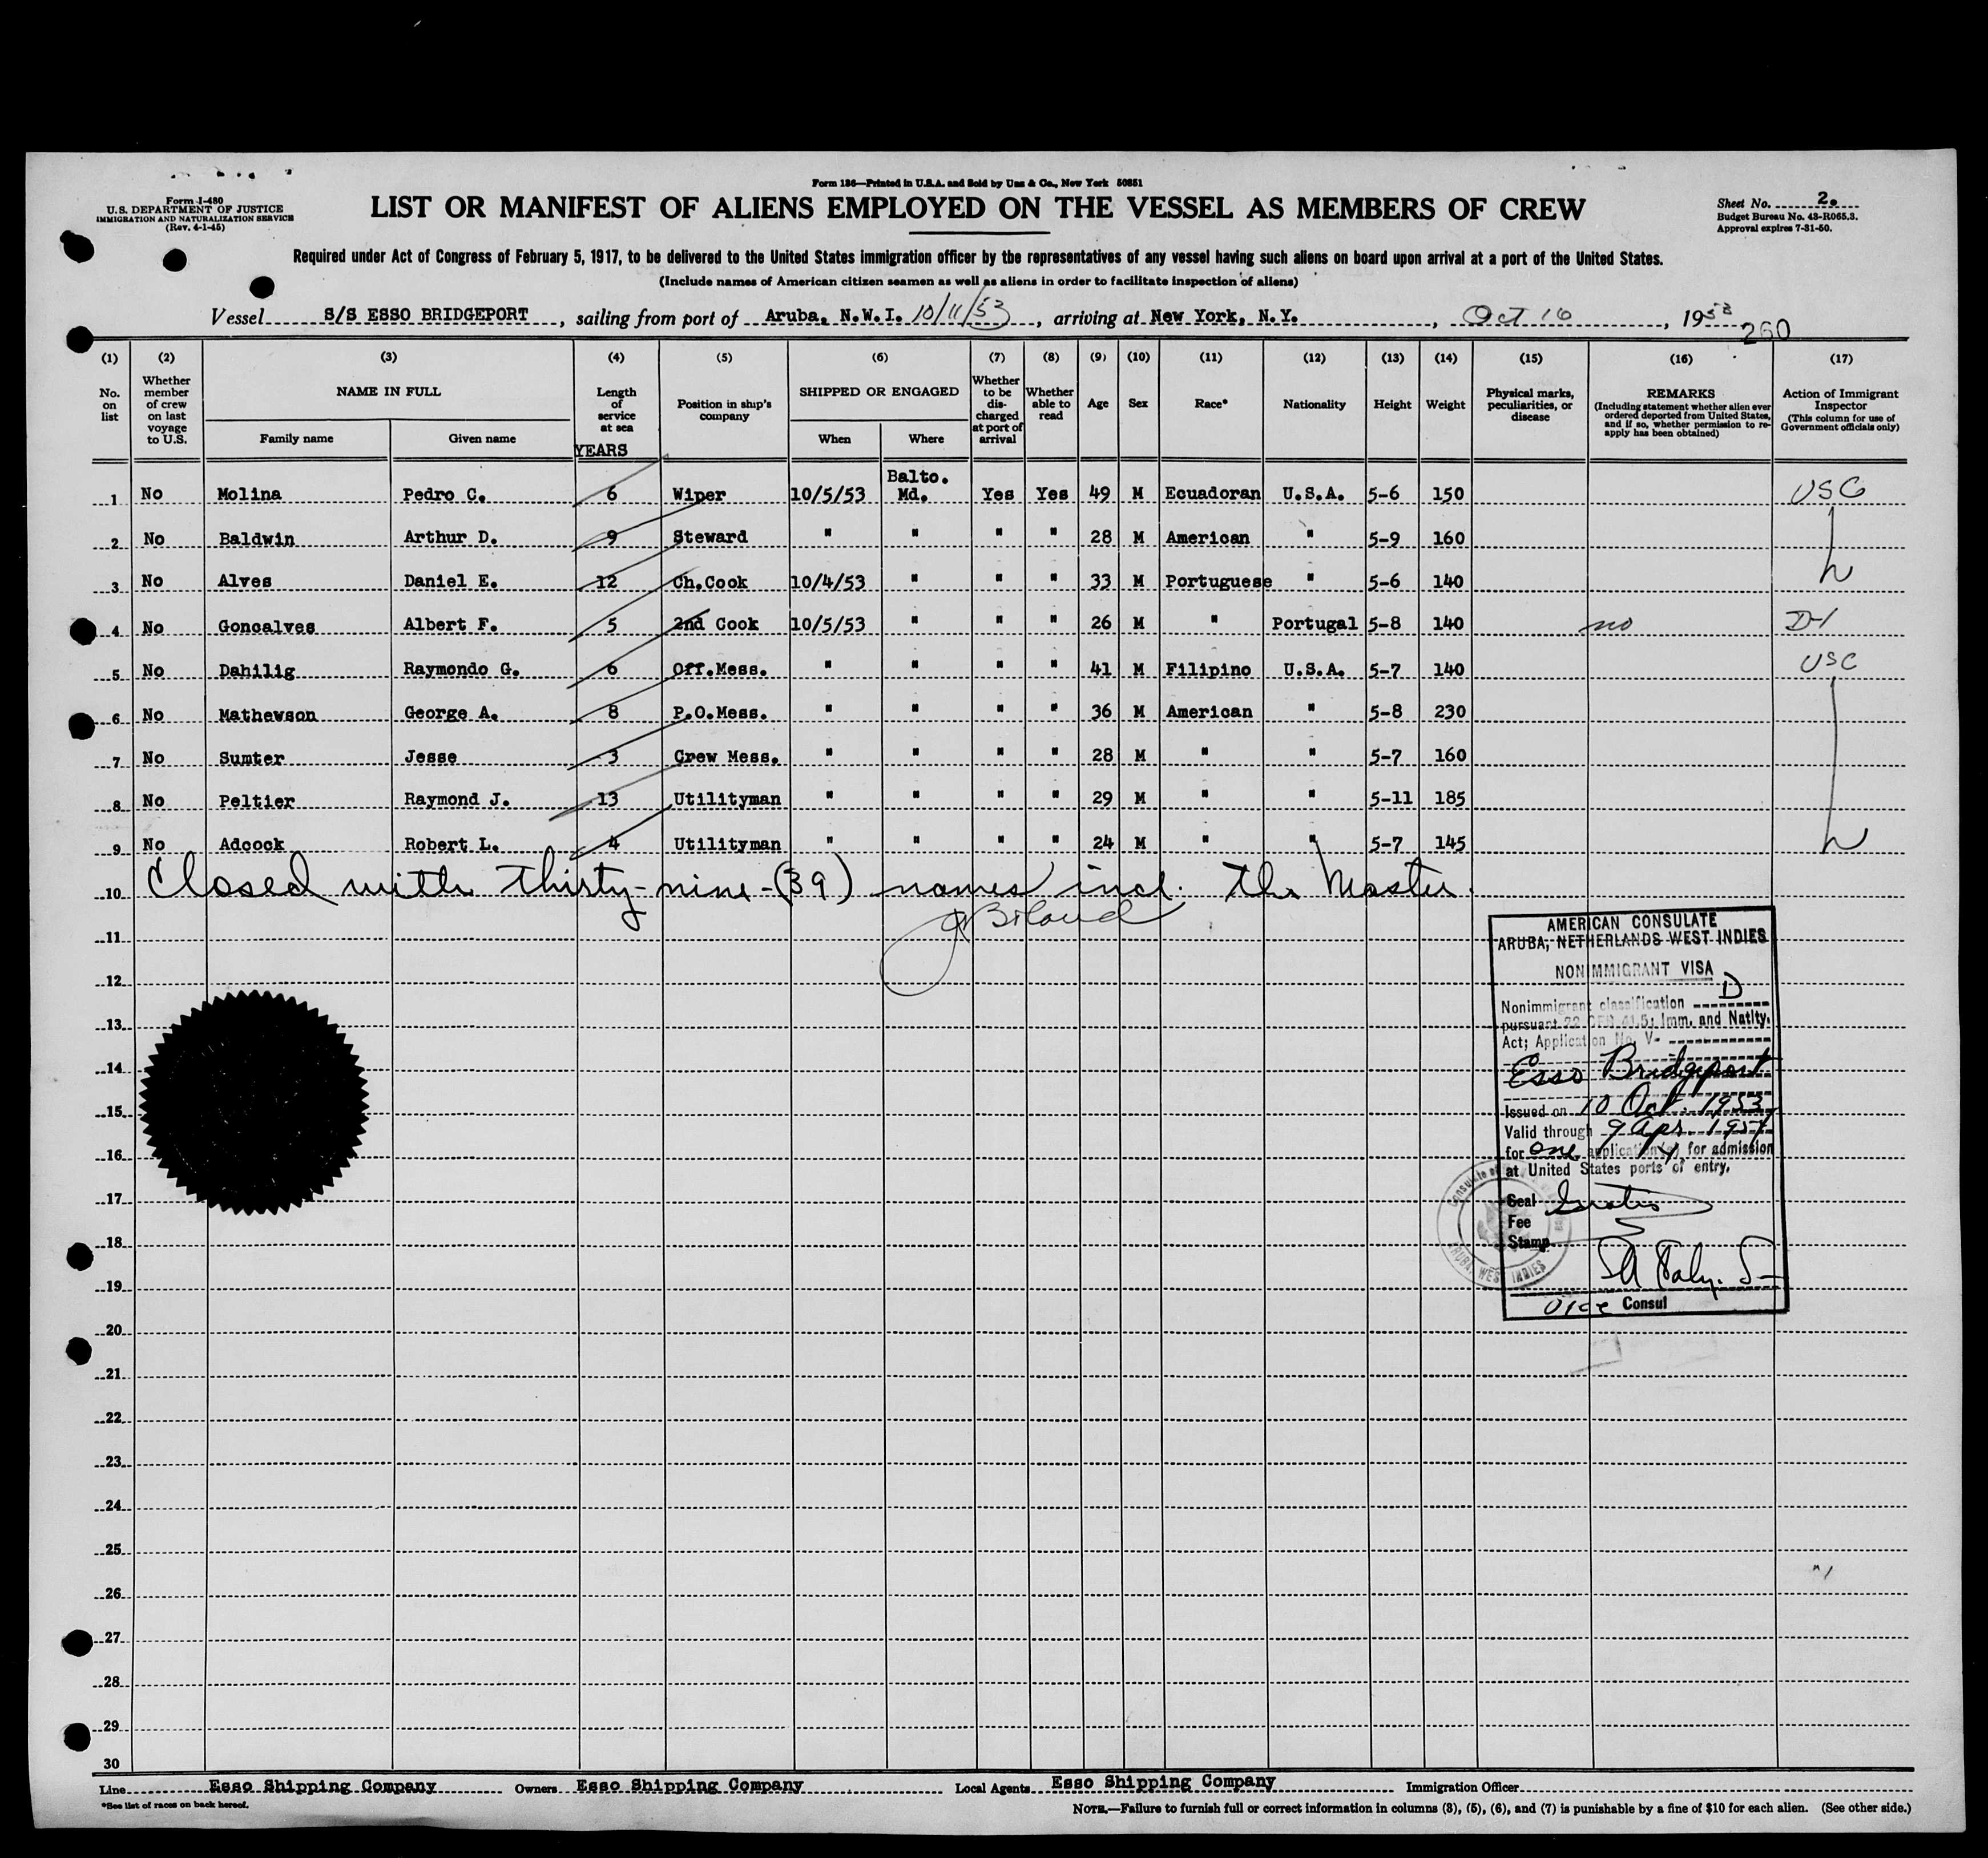 Form 186—Printed in U.S.A. and Sold by Unz & Co., New York 50851
Form I-480
U.S. DEPARTMENT OF JUSTICE
IMMIGRATION AND NATURALIZATION SERVICE
(Rev. 4-1-45)
LIST OR MANIFEST OF ALIENS EMPLOYED ON THE VESSEL AS MEMBERS OF CREW
Sheet No. 2.
Budget Bureau No. 43-R065.3.
Approval expires 7-31-50.
Required under Act of Congress of February 5, 1917, to be delivered to the United States immigration officer by the representatives of any vessel having such aliens on board upon arrival at a port of the United States.
(Include names of American citizen seamen as well as aliens in order to facilitate inspection of aliens)
Vessel S/S ESSO BRIDGEPORT, sailing from port of Aruba, N.W.I. 10/11/53, arriving at New York, N.Y., Oct 16, 1953
260
(1) (2) (3) (4) (5) (6) (7) (8) (9) (10) (11) (12) (13) (14) (15) (16) (17)
No. on list
Whether member of crew on last voyage to U.S.
NAME IN FULL
Family name
Given name
Length of service at sea
YEARS
Position in ship's company
SHIPPED OR ENGAGED
When
Where
Whether to be discharged at port of arrival
Whether able to read
Age
Sex
Race*
Nationality
Height
Weight
Physical marks, peculiarities, or disease
REMARKS
(Including statement whether alien ever ordered deported from United States, and if so, whether permission to re-apply has been obtained)
Action of Immigrant Inspector
(This column for use of Government officials only)
1 No Molina Pedro C. 6 Wiper 10/5/53 Balto. Md. Yes Yes 49 M Ecuadoran U.S.A. 5-6 150 USC
2 No Baldwin Arthur D. 9 Steward " " " " 28 M American " 5-9 160
3 No Alves Daniel E. 12 Ch.Cook 10/4/53 " " " 33 M Portuguese " 5-6 140
4 No Goncalves Albert F. 5 2nd Cook 10/5/53 " " " 26 M " Portugal 5-8 140 no D-1
5 No Dahilig Raymondo G. 6 Off.Mess. " " " " 41 M Filipino U.S.A. 5-7 140 USC
6 No Mathewson George A. 8 P.O.Mess. " " " " 36 M American " 5-8 230
7 No Sumter Jesse 3 Crew Mess. " " " " 28 M " " 5-7 160
8 No Peltier Raymond J. 13 Utilityman " " " " 29 M " " 5-11 185
9 No Adcock Robert L. 4 Utilityman " " " " 24 M " " 5-7 145
10 Closed with thirty-nine-(39) names incl. the Master.
11
12
13
14
15
16
17
18
19
20
21
22
23
24
25
26
27
28
29
30
AMERICAN CONSULATE
ARUBA, NETHERLANDS WEST INDIES
NONIMMIGRANT VISA
Nonimmigrant classification D
pursuant 22 CFR 41.5; Imm. and Natlty.
Act; Application No. V-
Esso Bridgeport
Issued on 10 Oct. 1953
Valid through 9 Apr. 1954
for one application(s) for admission
at United States ports of entry.
Seal Gratis
Fee
Stamp
Vice Consul
ARUBA, WEST INDIES
Line Esso Shipping Company Owners Esso Shipping Company Local Agents Esso Shipping Company Immigration Officer
*See list of races on back hereof.
NOTE.—Failure to furnish full or correct information in columns (3), (5), (6), and (7) is punishable by a fine of $10 for each alien. (See other side.)